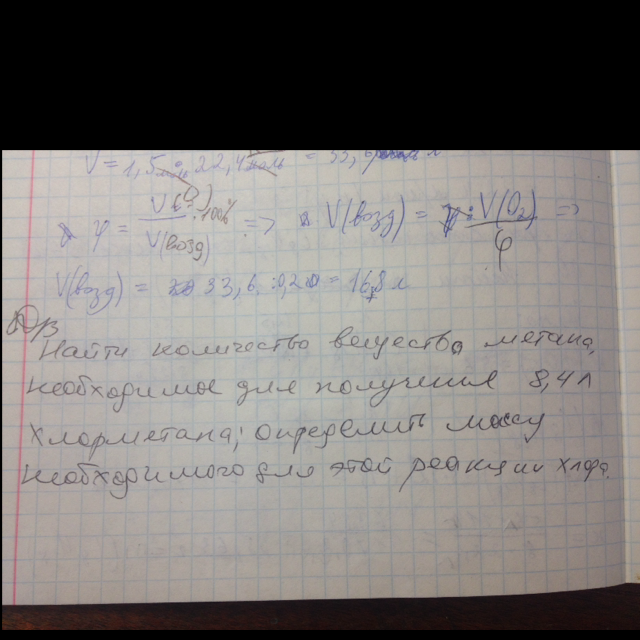 V = 1,5 22,4 = 33,6 л
φ = V( ) / V(возд) · 100% => V(возд) = V(O₂) / φ =>
V(возд) = 33,6 : 0,20 = 168 л
Д/з
Найти количество вещества метана,
необходимые для получения 8,4 л
хлорметана; определить массу
необходимого для этой реакции хлора.